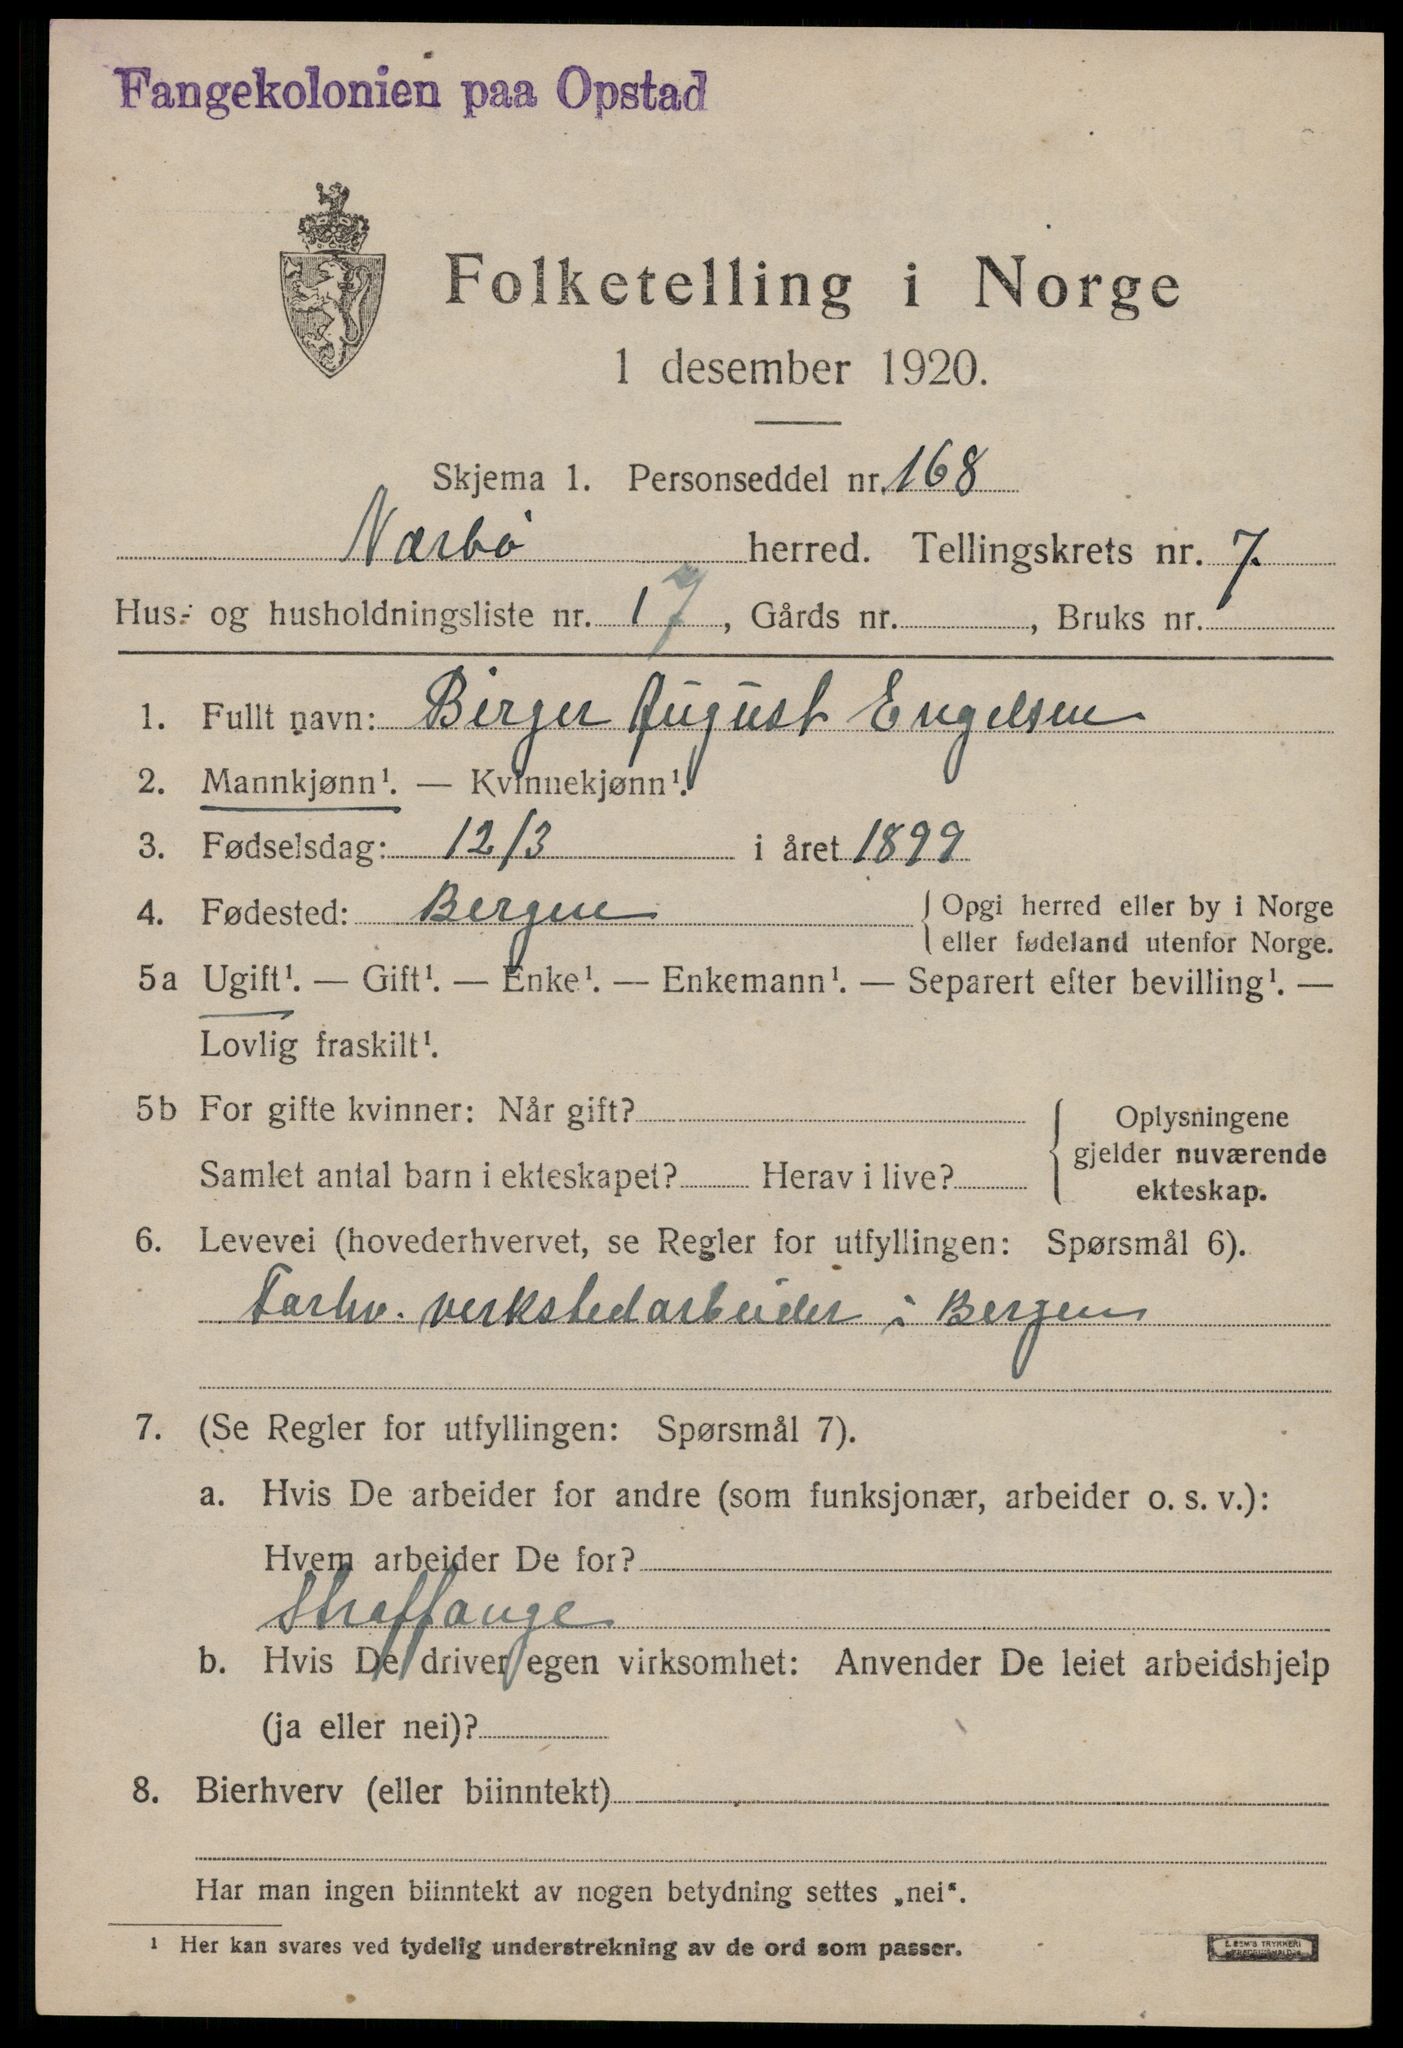 Fangekolonien paa Opstad
Folketelling i Norge
1 desember 1920.
Skjema 1. Personseddel nr. 168
Nærbø herred. Tellingskrets nr. 7.
Hus- og husholdningsliste nr. 17, Gårds nr. , Bruks nr.
1. Fullt navn: Birger August Engelsen
2. Mannkjønn¹. — Kvinnekjønn¹.
3. Fødselsdag: 12/3 i året 1899
4. Fødested: Bergen { Opgi herred eller by i Norge
eller fødeland utenfor Norge.
5a Ugift¹. — Gift¹. — Enke¹. — Enkemann¹. — Separert efter bevilling¹. —
Lovlig fraskilt¹.
5b For gifte kvinner: Når gift?
Samlet antal barn i ekteskapet? Herav i live?
{ Oplysningene
gjelder nuværende
ekteskap.
6. Levevei (hovederhvervet, se Regler for utfyllingen: Spørsmål 6).
Farhv. verkstedarbeider i Bergen
7. (Se Regler for utfyllingen: Spørsmål 7).
a. Hvis De arbeider for andre (som funksjonær, arbeider o. s. v.):
Hvem arbeider De for?
Straffange
b. Hvis De driver egen virksomhet: Anvender De leiet arbeidshjelp
(ja eller nei)?
8. Bierhverv (eller biinntekt)
Har man ingen biinntekt av nogen betydning settes „nei“.
¹ Her kan svares ved tydelig understrekning av de ord som passer.
TRYKKERI